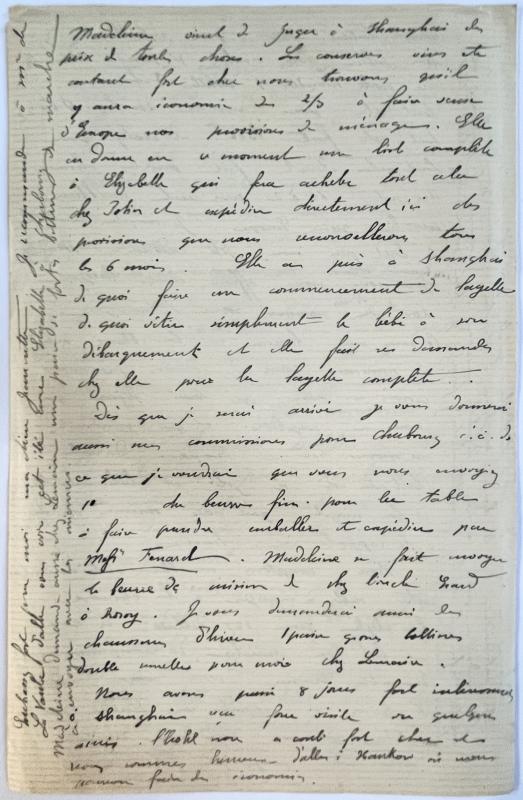 Madeleine vient de juger à Shanghai des
prix de toutes choses. Les conserves vives etc
coutant fort cher nous trouvons qu'il
y aura économie des 2/3 à faire venir
d'Europe nos provisions de ménage. Elle
en donne en ce moment une liste complète
à Elizabelle qui fera acheter tout cela
chez Potin et expédier directement ici des
provisions que nous renouvellerons tous
les 6 mois. Elle a pris à Shanghai
de quoi faire un commencement de layette
de quoi vêtir simplement le bébé à son
débarquement et elle fait ses demandes
chez elle pour la layette complète..
Dès que je serai arrivé je vous donnerai
aussi mes commissions pour Cherbourg c.à.d.
ce que je voudrais que vous nous envoyiez
1° du beurre fin pour la table
à faire prendre emballer et expédier par
Mess Fenard. Madeleine se fait envoyer
le beurre de cuisine de chez
à Rosoy. Je vous demanderai aussi des
chaussures d'hiver 1 paire grosses bottines
double semelle pour moi chez Lemoine.
Nous avons passé 8 jours fort intéressants
Shanghai vu fone visite vu quelques
amis. l'hotel nous a couté fort cher et
nous sommes heureux d'aller à Hankow où nous
pourrons faire des économies.
Embrassez fort pour moi ma chère Jeannette. Je recommande à Mr de
La Vieille Salle son voir cet été Cherbourg
Madeleine demande aussi chez Lemoine une paire fortes bottines de marche
à envoyer avec les miennes